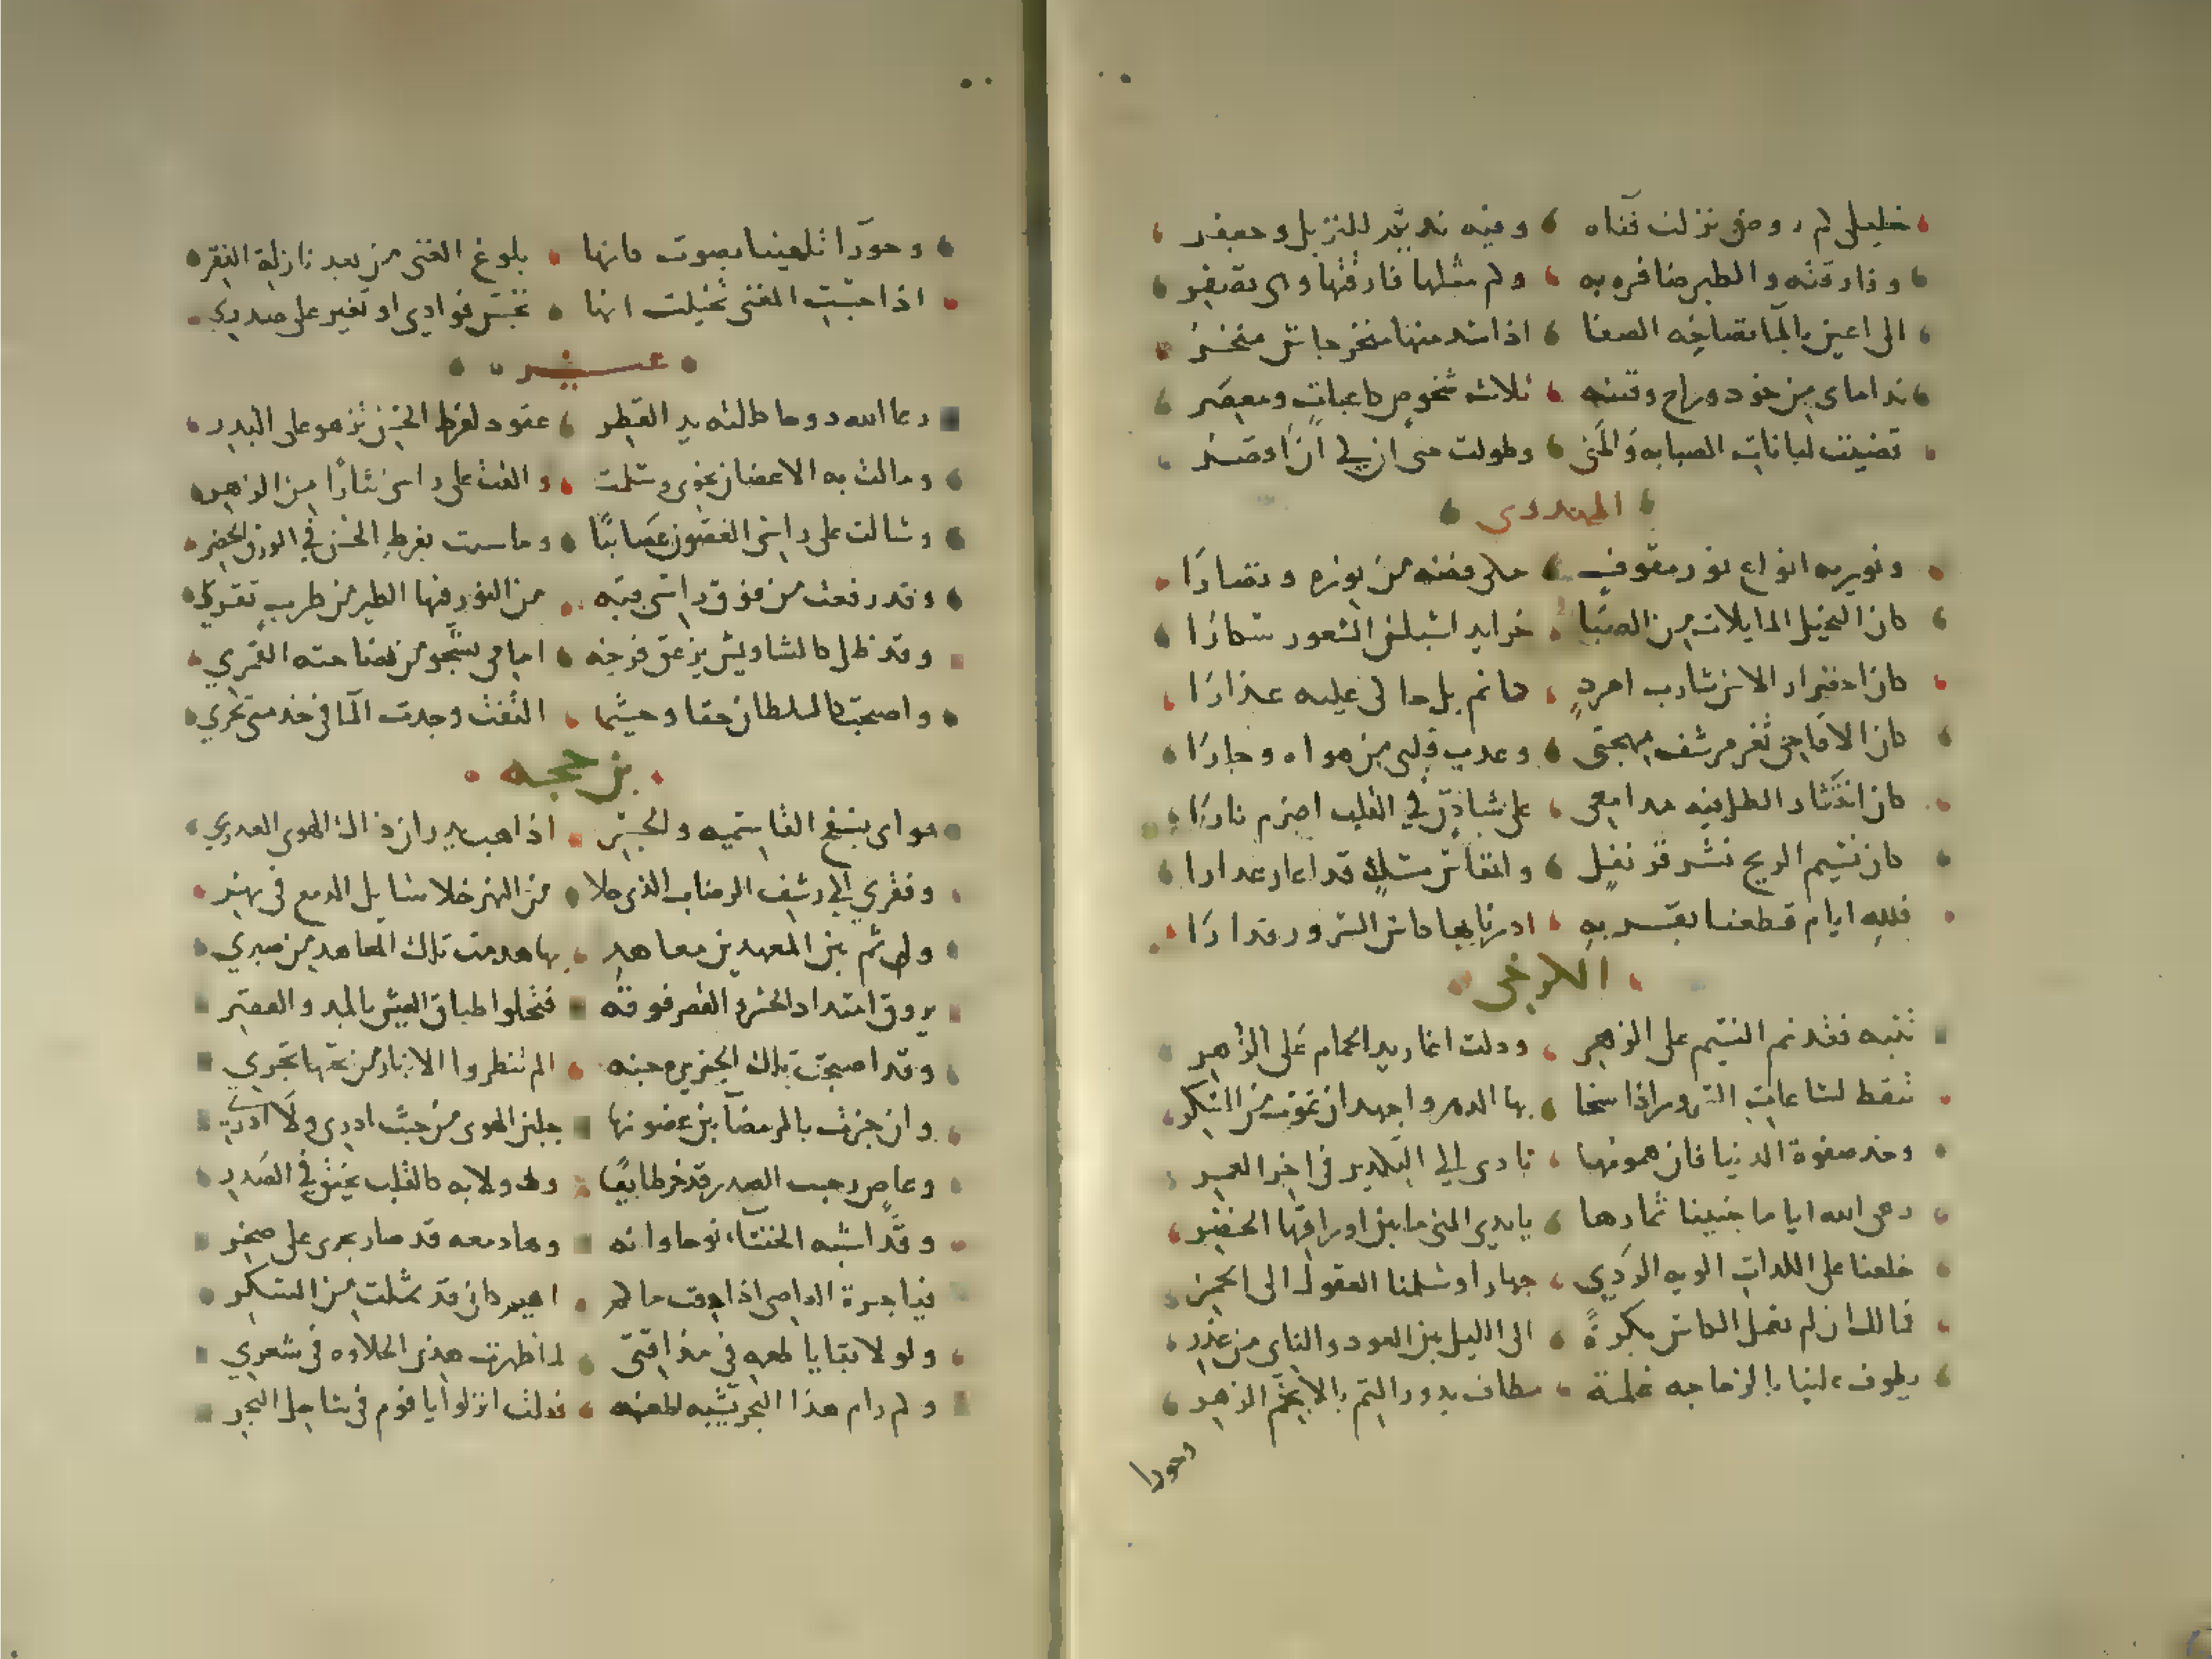 خليلي كم روض نزلت فناه وفيه نديم للنزيل وجعفر
وفارقته والطير صافره به وكم مثلها فارقتها وهي تصفر
الى اعين بالما نضاخه الصفا اذا سد منها منخر جاش منخر
نداماي من خود وراح وقينه ثلاث شخوص كاعبات ومعصر
قضيت لبانات الصبابه والمنى وطولت حتى ان لي ان اقصر
ونوريه انواع نور مفوف حلى فضه من نوره ونضارا
كان النخيل المايلات من الصبا خرايد اسبلن الشعور سكارا
كان اخضرار الاس شارب امرد
كان الاقاحي ثغر مرشف مهجتي وعذب قلبي من هواه وجارا
كان انتثار الطل فيه مدامعي على شادن في القلب اضرم نارا
كان نسيم الريح نشر قرنفل وانفاس مسك قد اعار عذارا
فلله ايام قطعنا بقربه ادرنا بها كاس السرور فدارا
الكرخي
تنبه فقد نم النسيم على الزهر ودلت اغاريد الحمام على الزهر
تيقظ لساعات السرور اذا سخا بها الدهر واجهد ان تموت من السكر
وخذ صفوة الدنيا فان همومها تادى الى التكدير في اخر العمر
رعى الله اياما جنينا ثمارها بايدي المنى ما بين اوراقها الخضر
خلعنا على اللذات الويه الردي جهارا وسلمنا العقول الى الخمر
فمالك ان لم نعمل الكاس بكرة الى الليل بين العود والناي من عذر
يطوف علينا بالزجاجه غلمة مطاف بدور التم بالانجم الزهر
وحورا
وحورا تلهينا بصوت كانها بلوغ الغنى من بعد نازلة الفقر
اذا جست المغنى تخيلت انها تجس فوادي او تغير على صدري
غيره
رعا الله دوحا كللته يد القطر عقود لفرط الحسن تزهو على البدر
ومالت به الاغصان نحوي وسلمت والقت على راسي نثارا من الزهر
وشالت على راس الغصون عصائبا وماست بفرط الحسن في الورق الخضر
وقد رفعت من فوق راسي قبه من النور فيها الطير من طرب تقري
وقد ظل كالشاويش يزعق فرخه امامي بسجو من فصاحته القمري
واصبحت كالسلطان حقا وحيثما التفت وجدت الما في خدمتي تجري
بن حجه
هواي بسفح القاسميه والجسر اذا هب يدر ان ذاك الهوى العذري
وفقري الى رشف الرضاب الذي حلا من النهر خلا سايل الدمع في نهر
ولي ثم بين المعهدين معاهد بها هدمت تلك المعاهد من صبري
يروق امتداد الجسر والقصر فوقه فتحلوا طباق العيش بالمد والقصر
وقد اصبحت تلك الجزيره جنه الم تنظروا الانهار من تحتها تجري
وان جزت بالرمضا بين غضونها جلبن الهوى من حيث ادري ولا ادري
وعاص رحيب الصدر قد خر طايعا ودولابه كالقلب يخفق في الصدر
وقد اشبه الخنساء نوحا وانه وها دمعه قد صار يجري على صخر
فيا جيرة العاصي اذا ذقت ماكم اهيم كاني قد ثملت من السكر
ولولا بقايا طعمه في مذاقتي لما ظهرت هذي الحلاوه في شعري
وكم رام هذا البحر تشبيه لطعنه فقلت انزلوا يا قوم في ساحل البحر